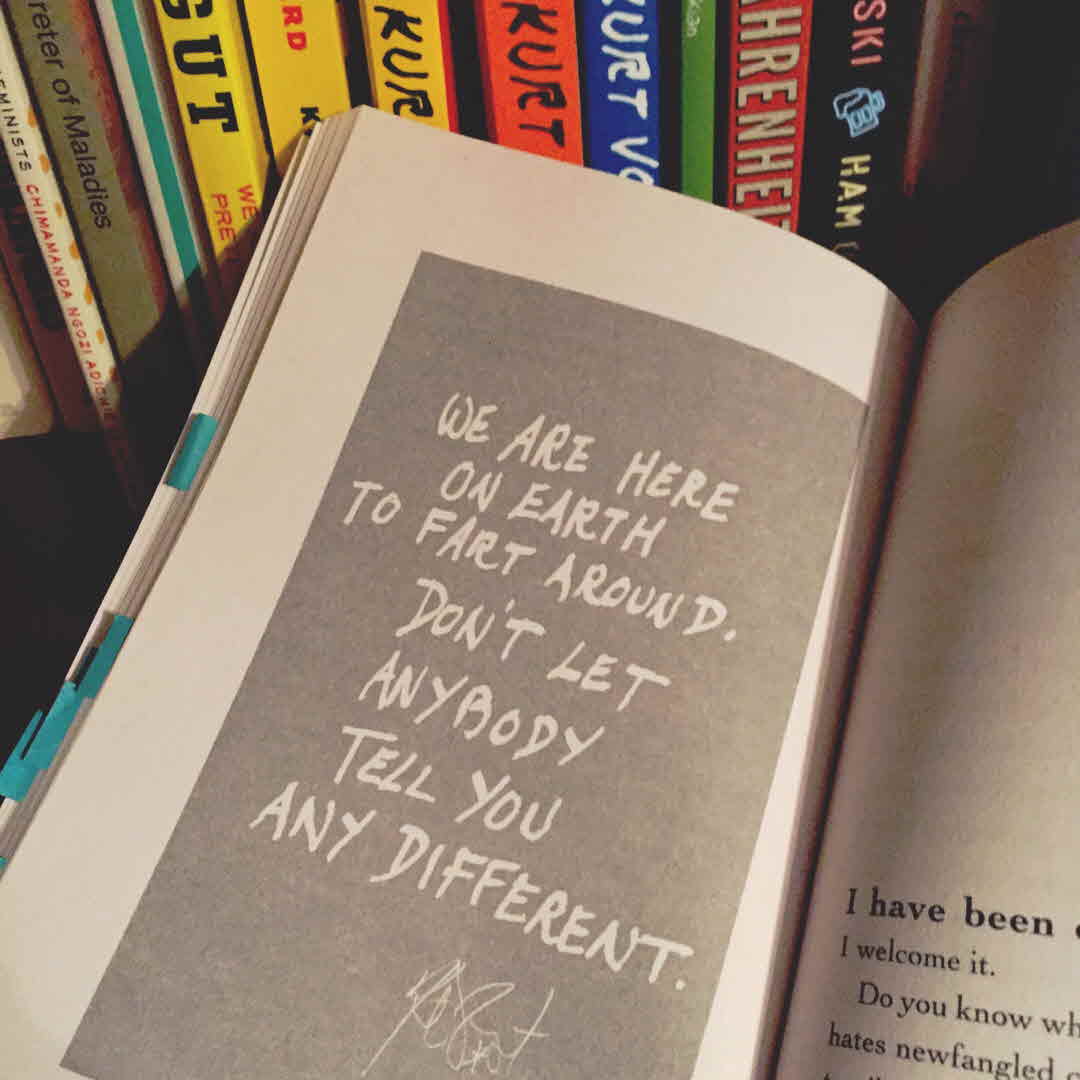 EMINISTS CHIMAMANDA NGOZI ADICHIE
reter of Maladies
GUT
WE
PRE
RD
K
KUR
KURT
KURT VO
HRENHEIT
SKI HAM
WE ARE HERE
ON EARTH
TO FART AROUND.
DON'T LET
ANYBODY
TELL YOU
ANY DIFFERENT.
I have been
I welcome it.
Do you know wh
hates newfangled